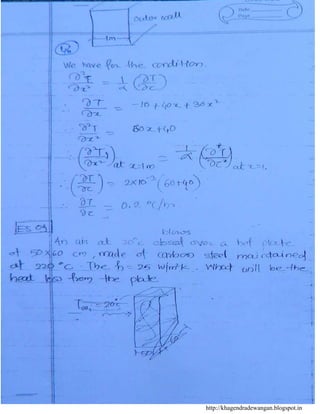 outer wall
1m
We have for the condition.
∂²T/∂x² = 1/α (∂T/∂c)
∴ ∂T/∂x = -10 + 40x + 30x²
∴ ∂²T/∂x² = 60x + 40
∴ (∂²T/∂x²) at x=1m = 1/α (∂T/∂c) at x=1.
∴ (∂T/∂c) = 2×10⁻³ (60+40)
∴ ∂T/∂c = 0.2 °C/
Ex. 04
blows
An air at 20°c over a hot plate
of 50×60 cm, made of carbon steel maintained
at 220°C. The h = 25 w/m²k. What will be the
heat loss from the plate.
T∞ = 20°c
50
60
http://khagendradewangan.blogspot.in